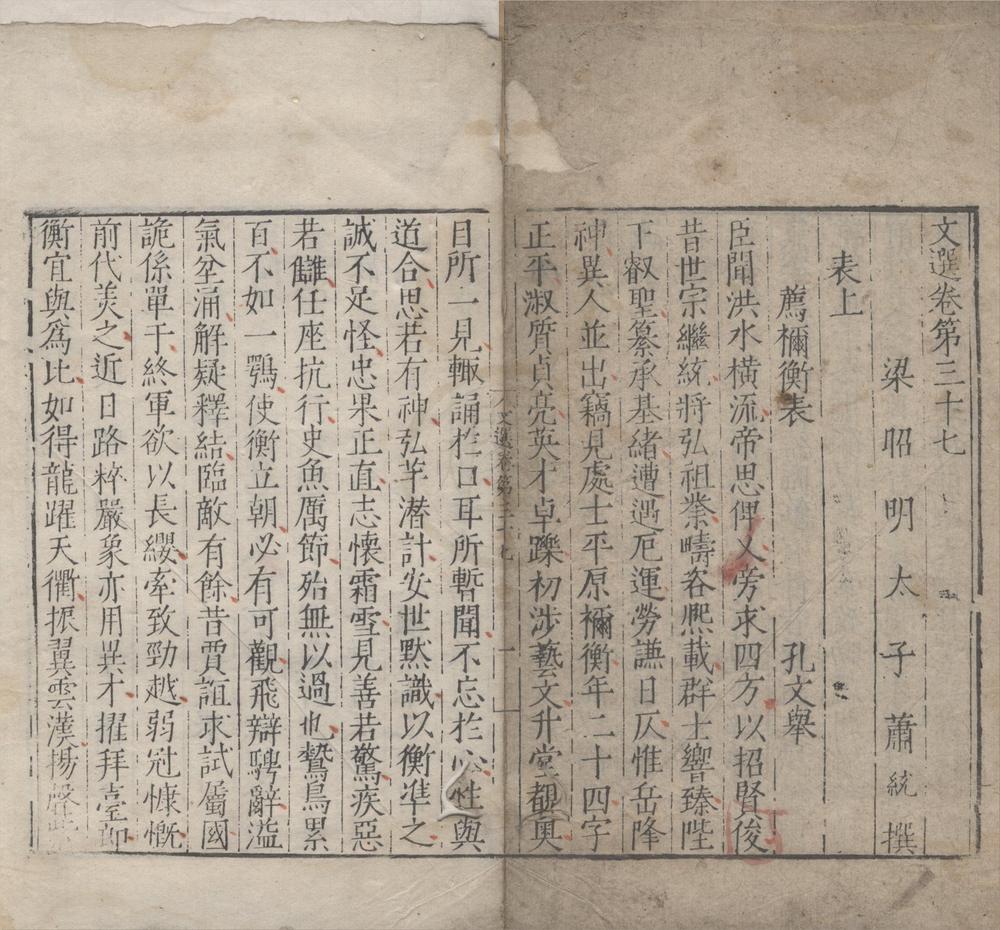 文選卷第三十七
梁昭明太子蕭統撰
表上
薦禰衡表 孔文舉
臣聞洪水橫流帝思俾乂旁求四方以招賢俊
昔世宗繼統將弘祖業疇咨熙載群士響臻陛
下叡聖纂承基緒遭遇厄運勞謙日仄惟岳降
神異人並出竊見處士平原禰衡年二十四字
正平淑質貞亮英才卓躒初涉藝文升堂覩奧
文選卷第三十七 一
目所一見輒誦於口耳所暫聞不忘於心性與
道合思若有神弘羊潛計安世默識以衡準之
誠不足怪忠果正直志懷霜雪見善若驚疾惡
若讎任座抗行史魚厲節殆無以過也鷙鳥累
百不如一鶚使衡立朝必有可觀飛辯騁辭溢
氣坌涌解疑釋結臨敵有餘昔賈誼求試屬國
詭係單于終軍欲以長纓牽致勁越弱冠慷慨
前代美之近日路粹嚴象亦用異才擢拜臺郎
衡宜與爲比如得龍躍天衢振翼雲漢揚聲